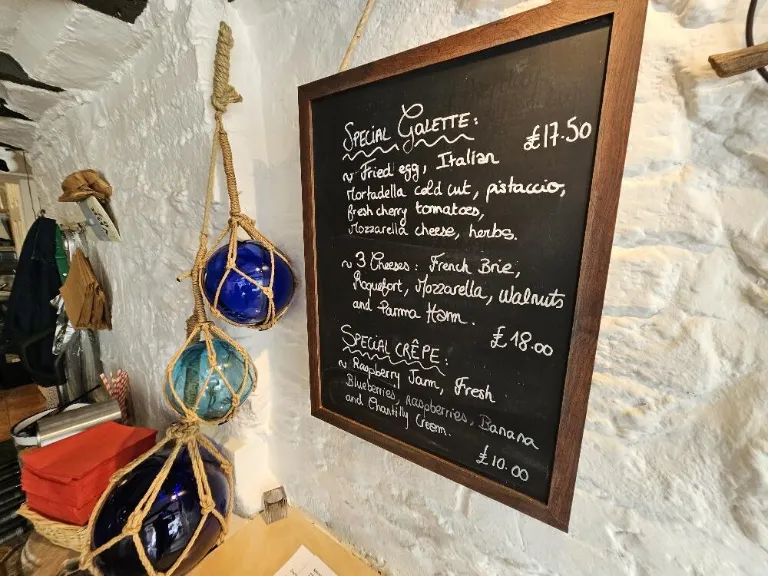 Special Galette:
£17.50
~ Fried egg, Italian
Mortadella cold cut, pistaccio,
fresh cherry tomatoes,
Mozzarella cheese, herbs.
~ 3 Cheeses: French Brie,
Roquefort, Mozzarella, Walnuts
and Parma Ham.
£18.00
Special Crêpe:
~ Raspberry Jam, Fresh
Blueberries, raspberries, Banana
and Chantilly Cream.
£10.00